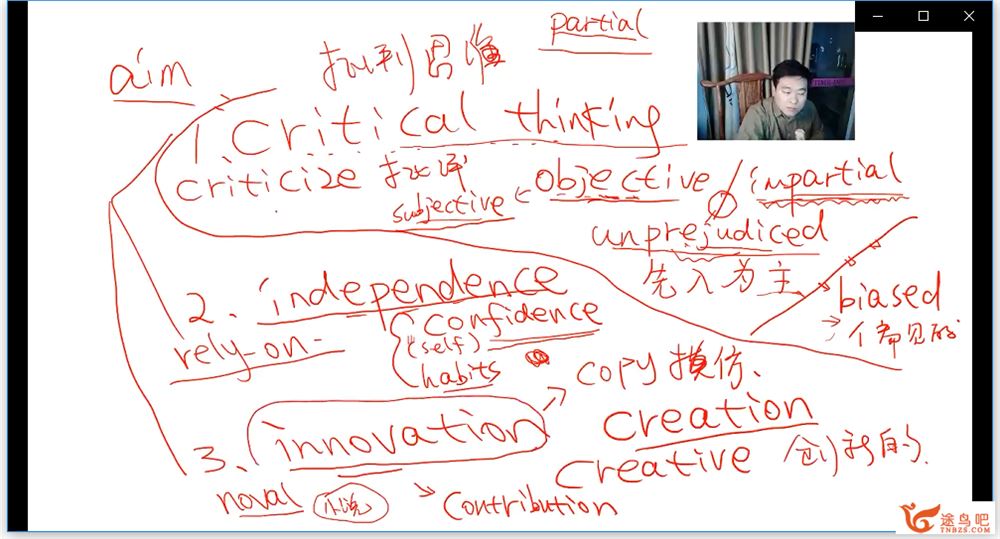 partial
aim 批判思维
1 Critical thinking
criticize 批评 subjective objective impartial
unprejudiced
先入为主
biased
偏见的
2. independence
rely-on-
confidence
(self)
habits
copy 摸仿、
3. innovation
creation
creative 创新的.
noval 小说
contribution
途鸟吧
TNBZS.COM